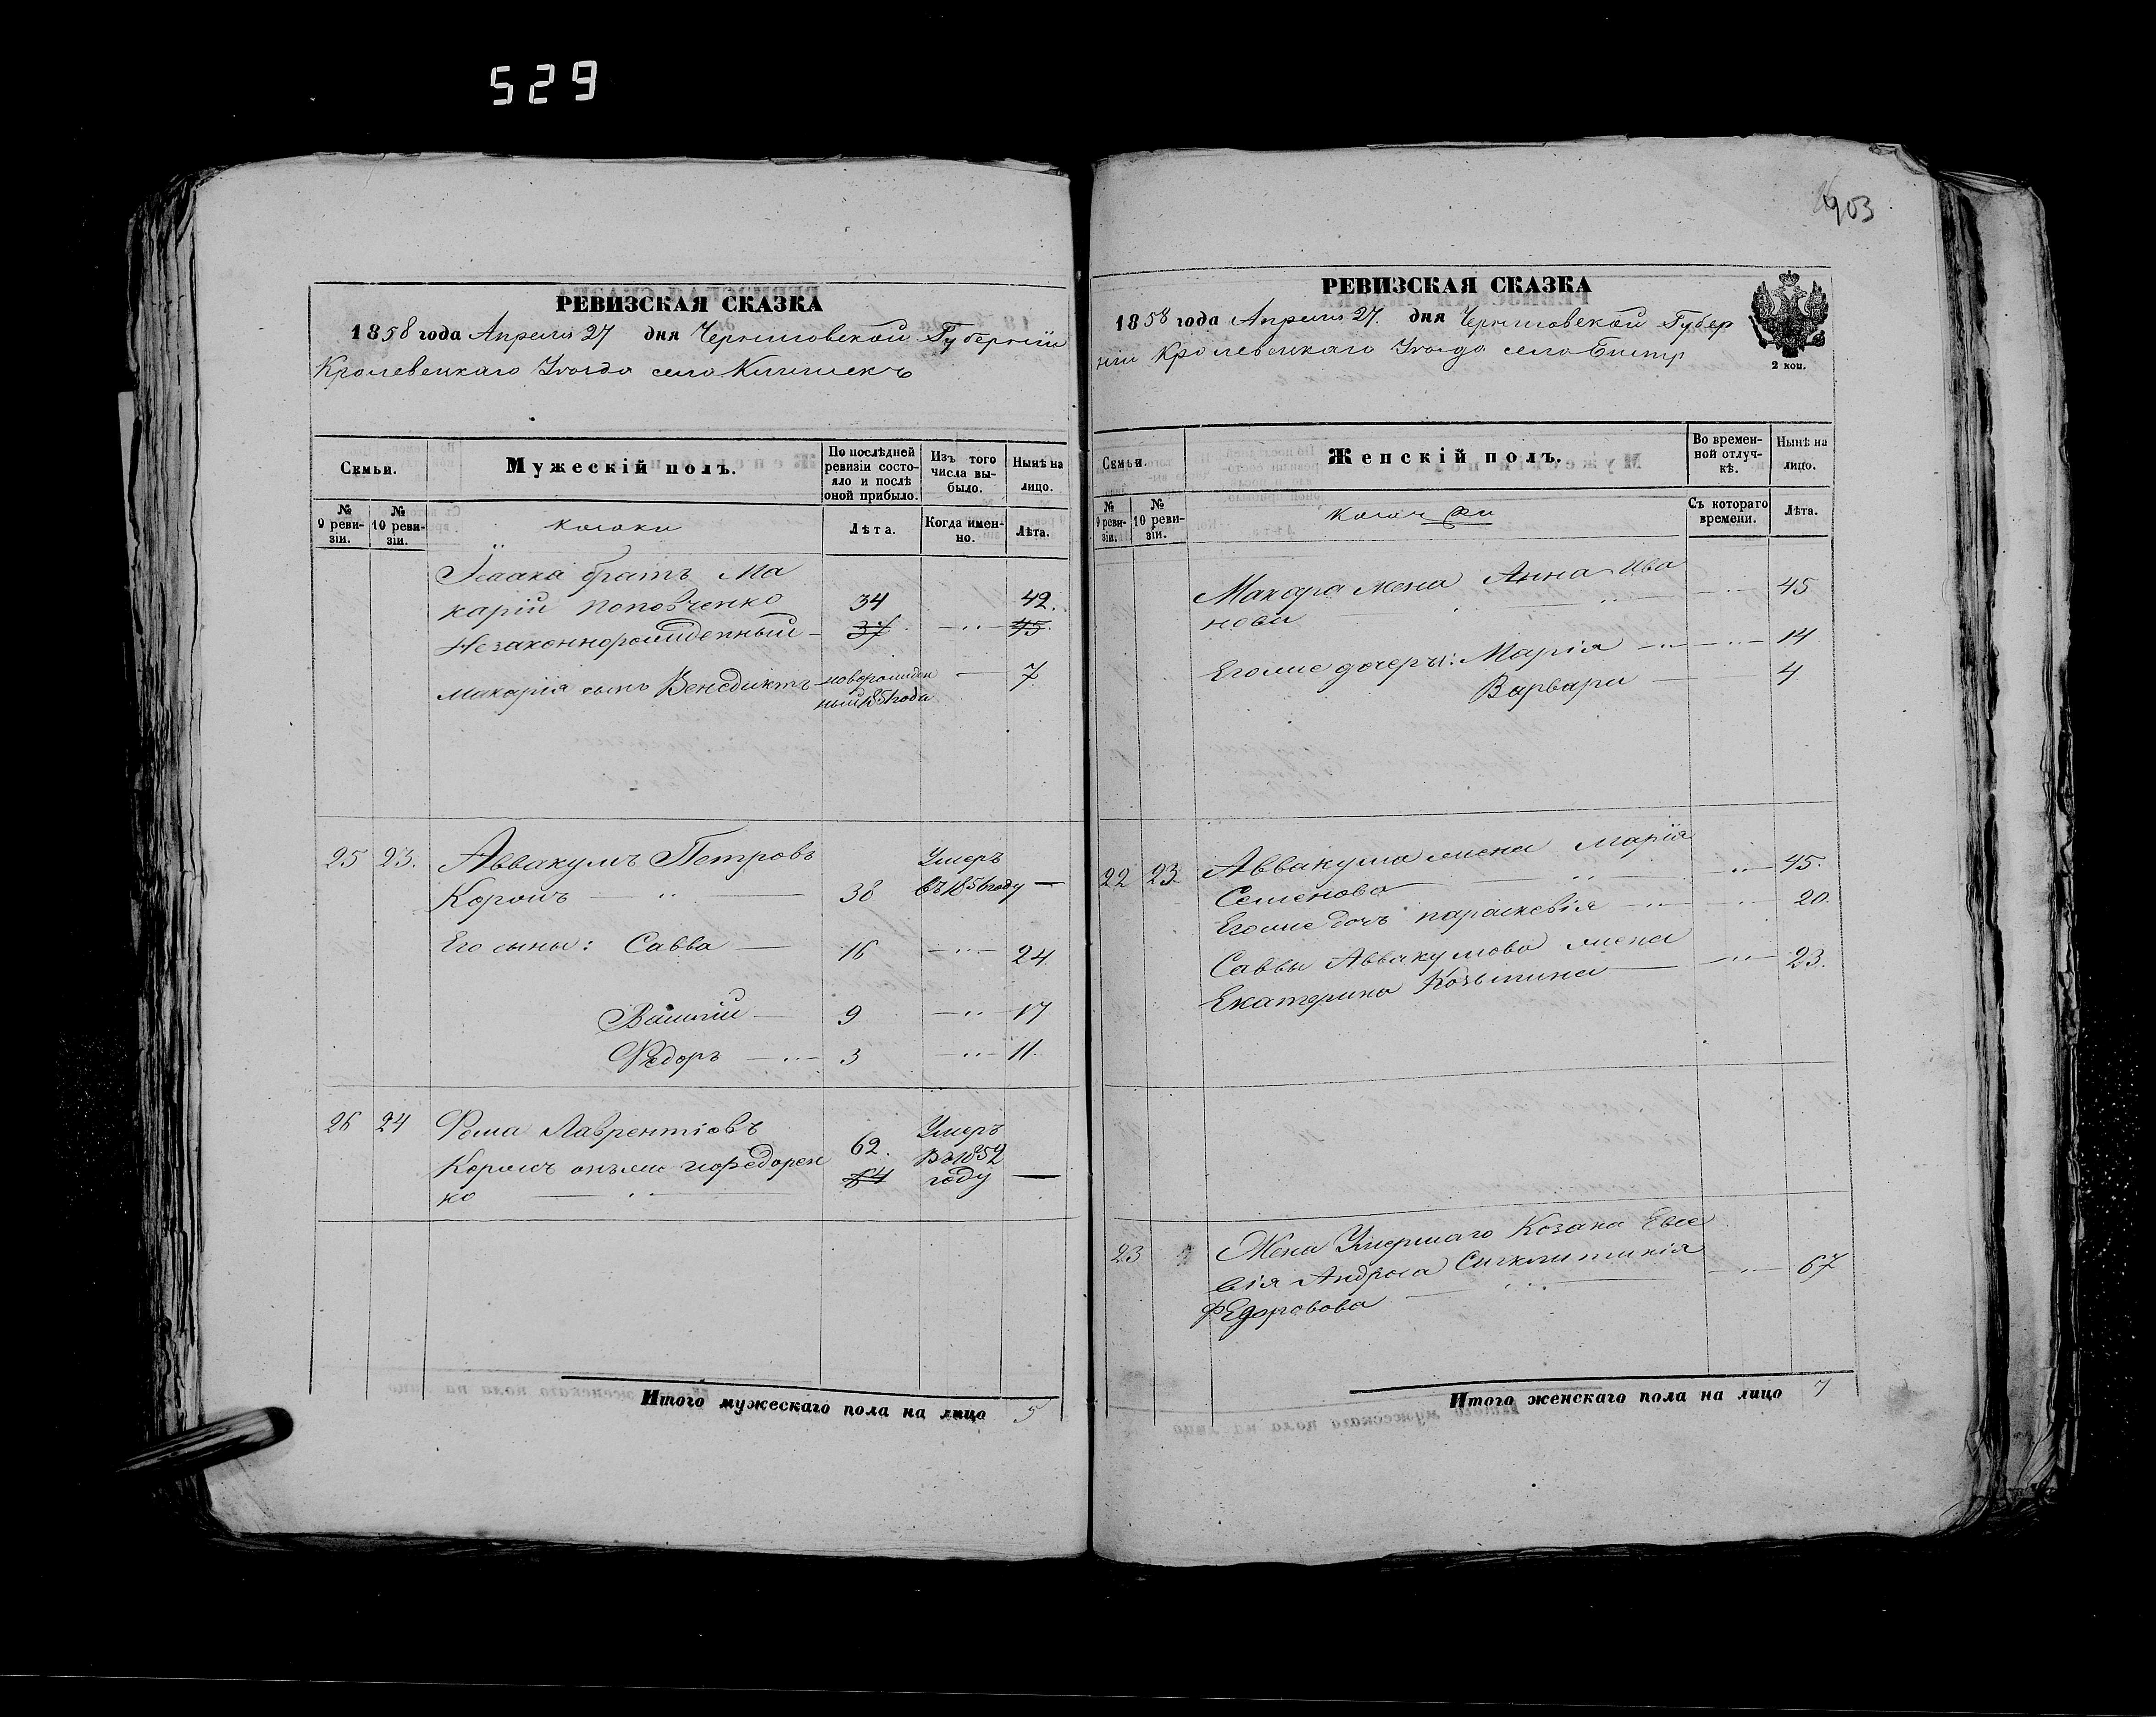 529
903
РЕВИЗСКАЯ СКАЗКА
1858 года Апреля 27 дня Черниговской Губернии
Кролевецкаго Уезда село Клишекъ
Семьи.
Мужескій полъ.
По послѣдней ревизіи состояло и послѣ оной прибыло.
Изъ того числа выбыло.
Нынѣ на лицо.
№ 9 ревизіи.
№ 10 ревизіи.
козаки
Лѣта.
Когда именно.
Лѣта.
Исаака братъ Ма
карій Поповченко 34 42.
Незаконнорожденный 37 45.
Макарія сынъ Венедиктъ новорожден 7
ный 1851 года
25 23. Аввакумъ Петровъ Умеръ
Корожъ 38 въ 1856 году
Его сыны: Савва 16 24.
Василій 9 17
Фёдоръ 3 11.
26 24 Фома Лаврентіовъ 62. Умеръ
въ 1852
ко 64 году
Итого мужескаго пола на лицо 5
РЕВИЗСКАЯ СКАЗКА
1858 года Апреля 27. дня Черниговской Губер
ніи Кролевецкаго Уезда село
2 коп.
Семьи.
Женскій полъ.
Во временной отлучкѣ.
Нынѣ на лицо.
№ 9 ревизіи.
№ 10 ревизіи.
Съ котораго времени.
Лѣта.
Макара жена Анна Ива 45
нова
Егоже дочеры: Марія 14
Варвара 4
22 23 Аввакума жена Марія 45.
Семенова
Егоже дочъ Параскевія 20.
Саввы Аввакумова жена 23.
Екатерина Козьмина
23 Жена Умершаго Козака Евсе
вія Андроса 67
Федоровова
Итого женскаго пола на лицо 7